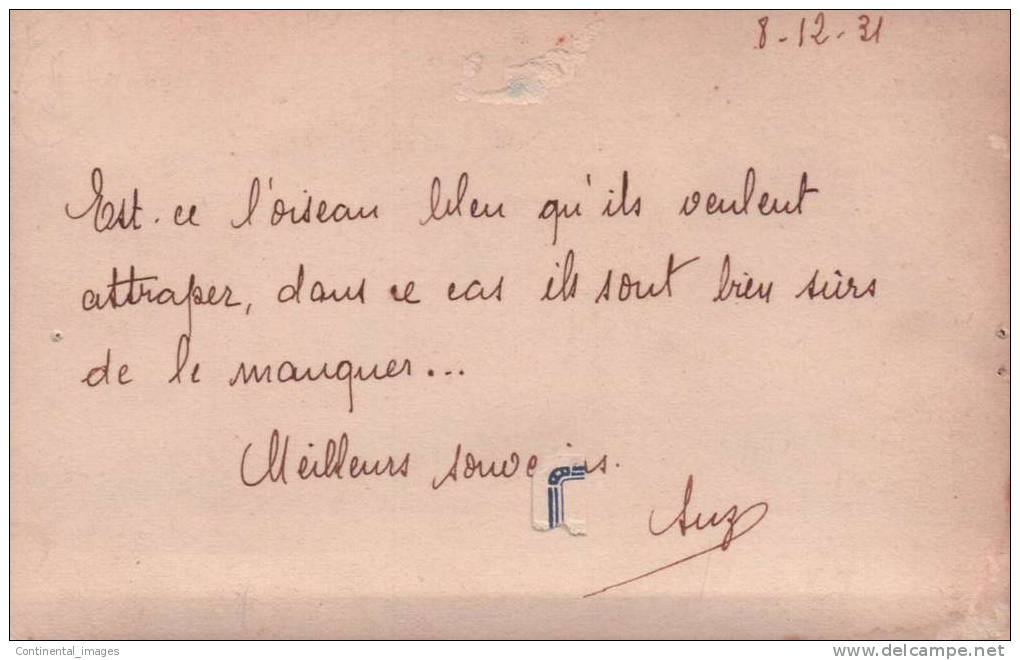 8-12-31
Est-ce l'oiseau bleu qu'ils veulent
attraper, dans ce cas ils sont bien sûrs
de le manquer...
Meilleurs
Suz
Continental_images
delcampe.net